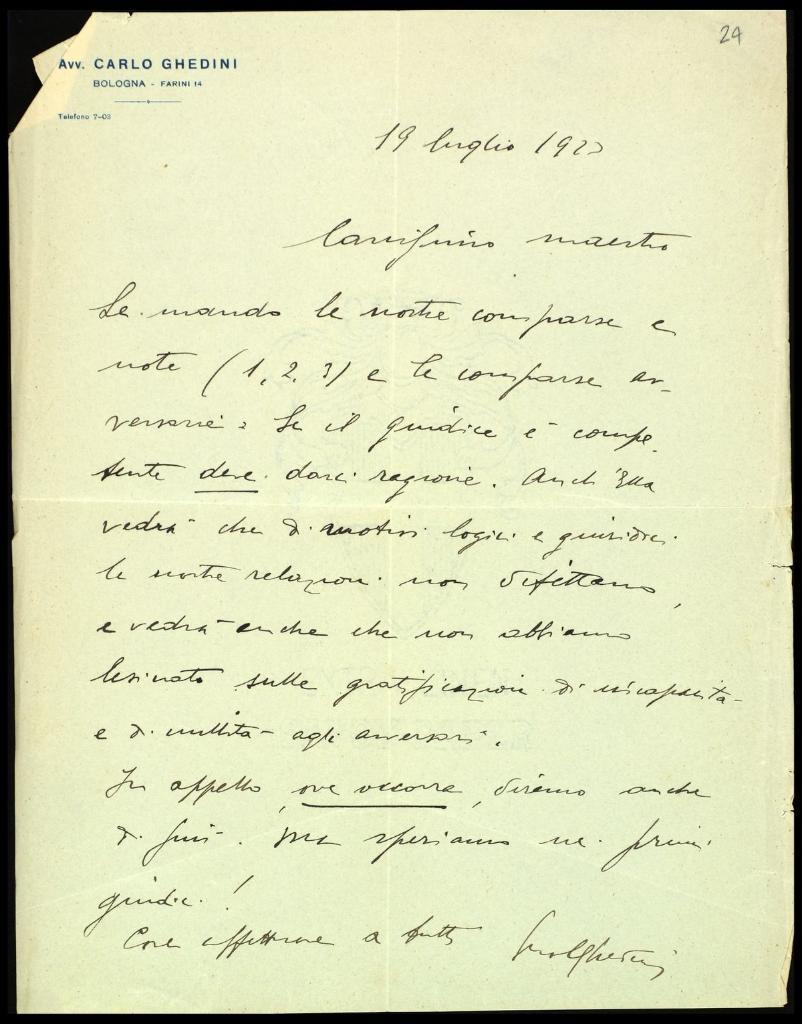 24
Avv. CARLO GHEDINI
BOLOGNA - FARINI 14
Telefono 7-03
19 luglio 192
Carissimo maestro
Le mando le nostre comparse e
note (1, 2, 3) e le comparse av-
versarie: Se il giudice è compe-
tente deve darci ragione. Anch'Ella
vedrà che di motivi logici e giuridici
le nostre relazioni non difettano,
e vedrà anche che non abbiamo
lesinato sulle gratificazioni di incapacità
e di nullità agli avversari.
In appello, ove occorra, diremo anche
di più. Ma speriamo nei primi
giudici!
Cose affettuose a tutti
Ghedini